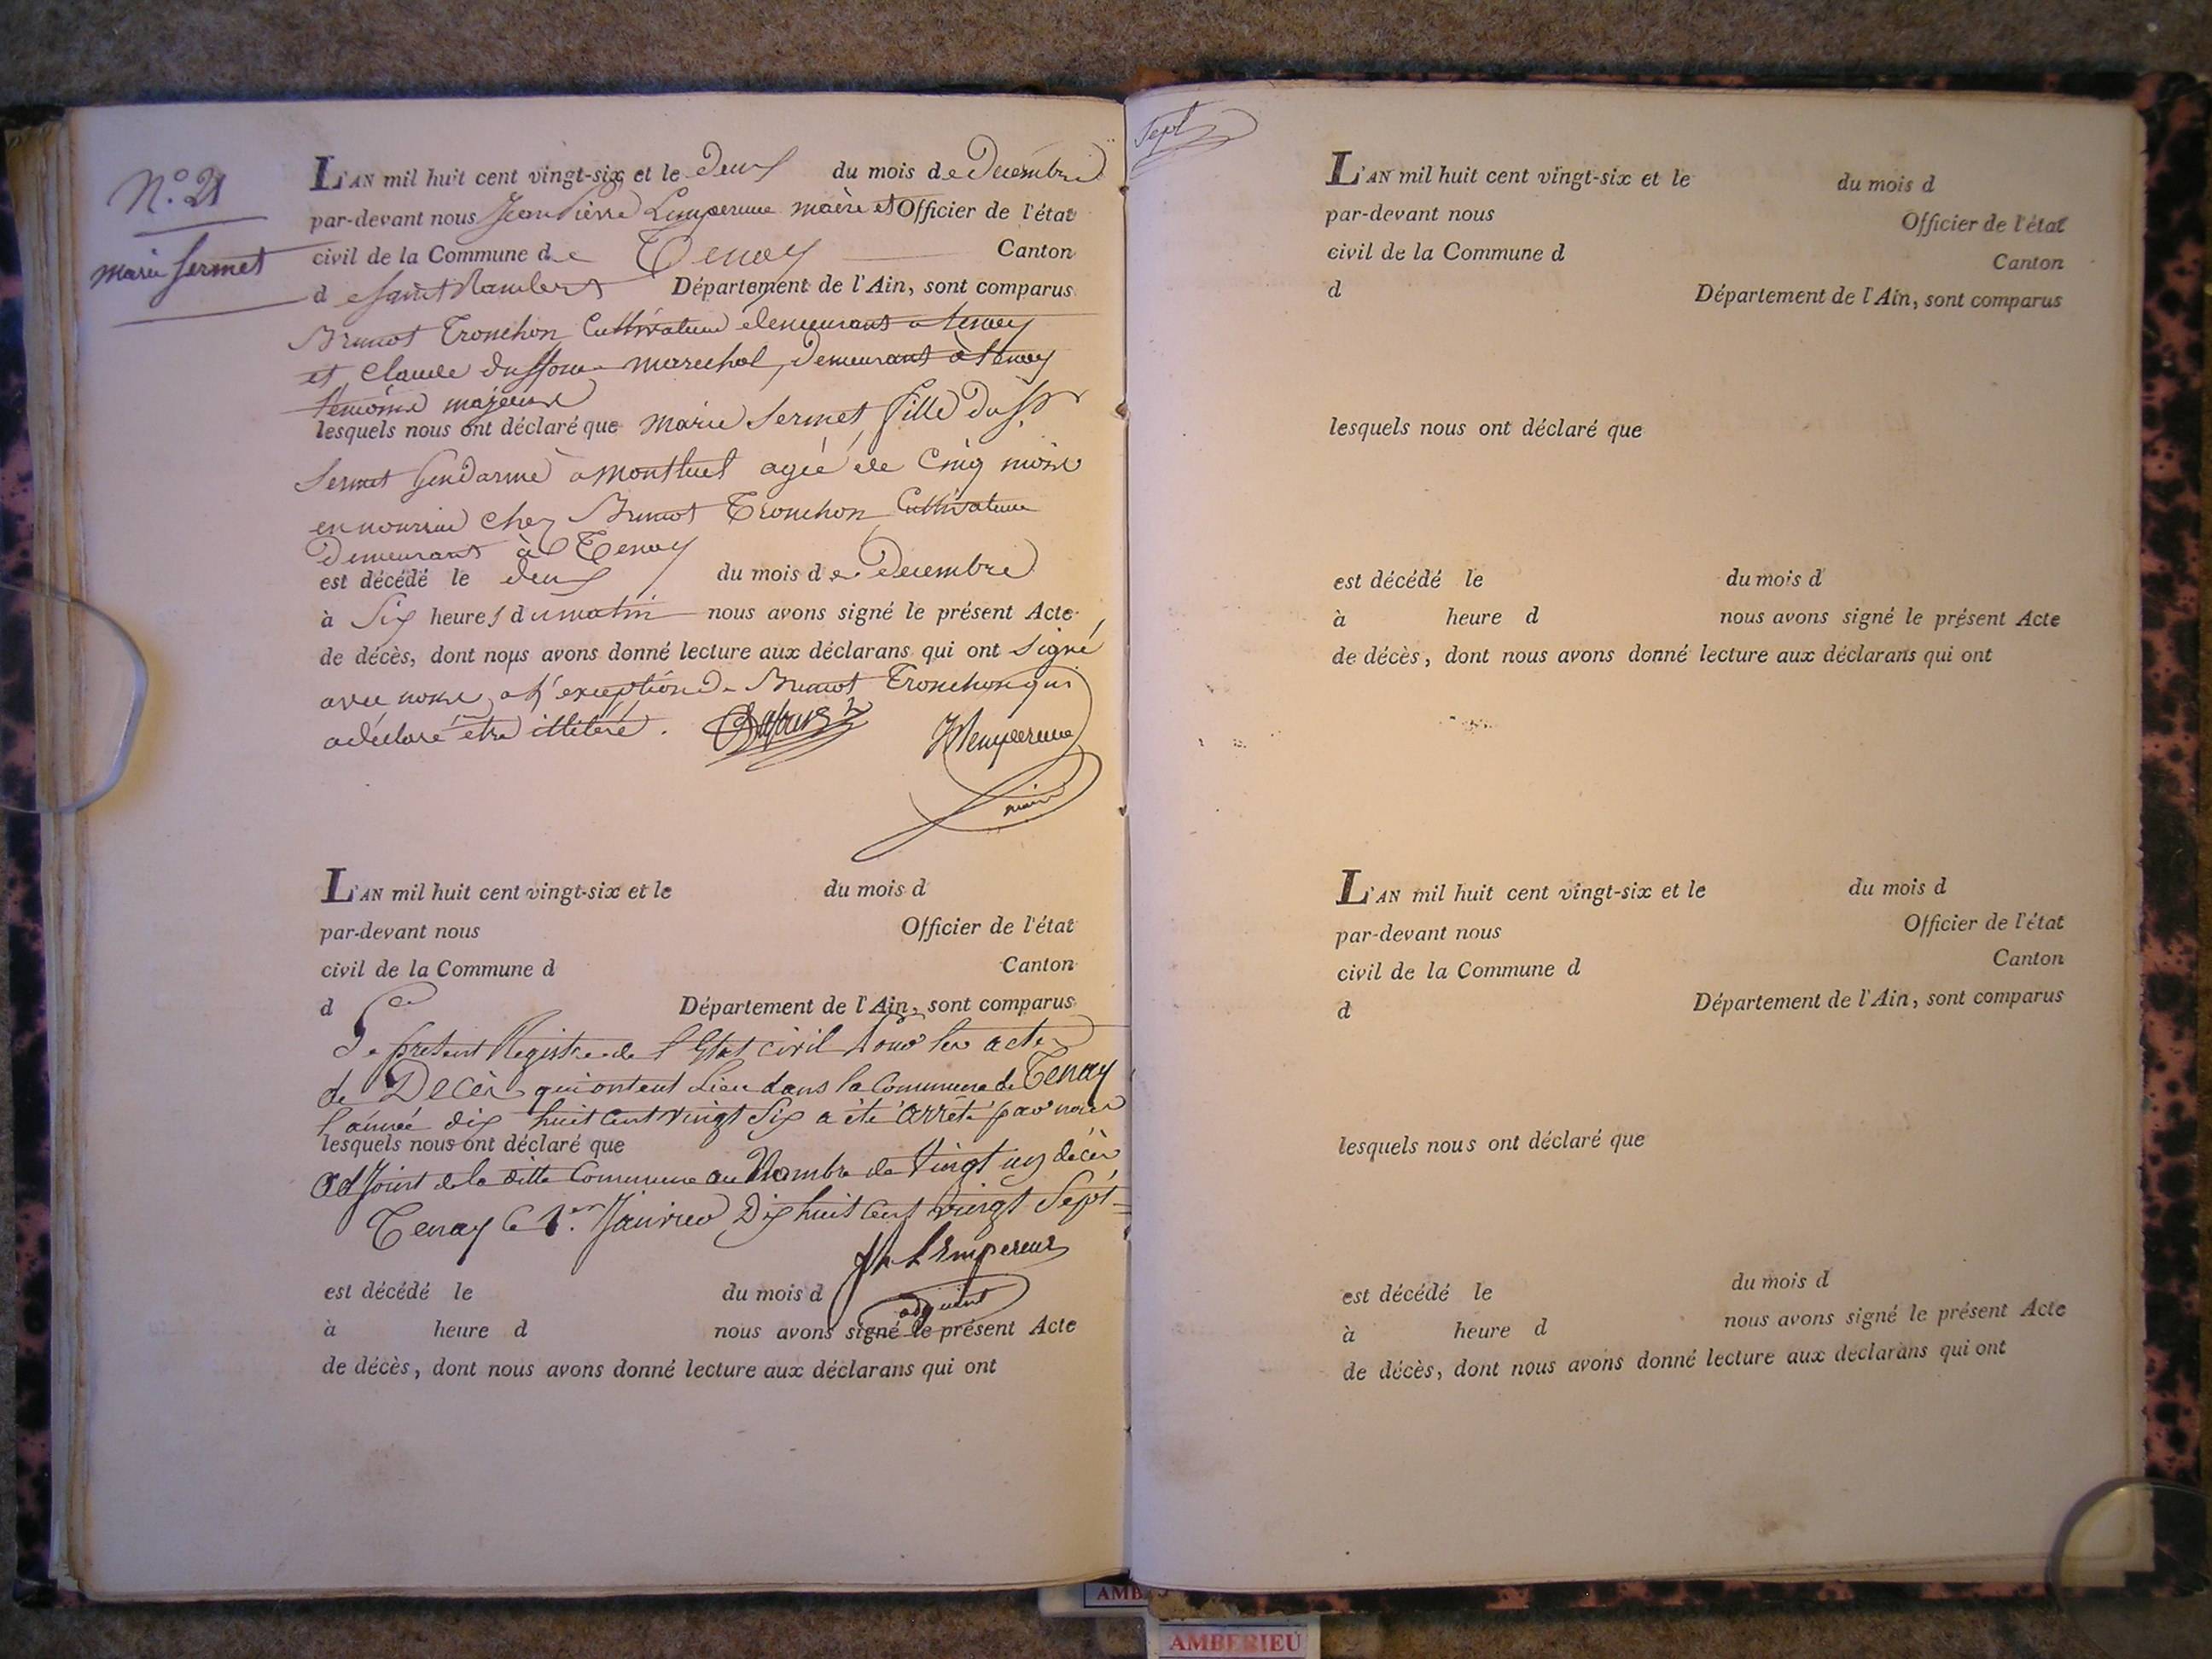 N.o 21
marie Sermet
L'AN mil huit cent vingt-six et le Deux du mois de Decembre
par-devant nous Jean Pierre Lempereur maire et Officier de l'état
civil de la Commune de Tenay Canton
de Saint Rambert Département de l'Ain, sont comparus
Tronchon Cultivateur demeurant a tenay
et Claude marechal, demeurant à tenay
temoins majeurs
lesquels nous ont déclaré que marie Sermet, fille du Sr
Sermet Gendarme a montluel agée de Cinq mois
en nourrice chez Tronchon Cultivateur
Demeurant à Tenay
est décédé le deux du mois de Decembre
à Six heures du matin nous avons signé le présent Acte
de décès, dont nous avons donné lecture aux déclarans qui ont signé
avec nous, a l'exception de Tronchon qui
a déclaré être illiteré.
JPLempereur
maire
L'AN mil huit cent vingt-six et le du mois d
par-devant nous Officier de l'état
civil de la Commune d Canton
d Département de l'Ain, sont comparus
Le présent Registre de l'Etat civil pour les actes
de Décès qui ont eut Lieu dans la Commune de Tenay
l'année dix huit cent vingt Six a été arrêté par nous
lesquels nous ont déclaré que
adjoint de la ditte Commune au Nombre de Vingt un décès
Tenay le 1.er Janvier Dix huit Cent vingt Sept
LEmpereur
adjoint
est décédé le du mois d
à heure d nous avons signé le présent Acte
de décès, dont nous avons donné lecture aux déclarans qui ont
Sept
L'AN mil huit cent vingt-six et le du mois d
par-devant nous Officier de l'état
civil de la Commune d Canton
d Département de l'Ain, sont comparus
lesquels nous ont déclaré que
est décédé le du mois d
à heure d nous avons signé le présent Acte
de décès, dont nous avons donné lecture aux déclarans qui ont
L'AN mil huit cent vingt-six et le du mois d
par-devant nous Officier de l'état
civil de la Commune d Canton
d Département de l'Ain, sont comparus
lesquels nous ont déclaré que
est décédé le du mois d
à heure d nous avons signé le présent Acte
de décès, dont nous avons donné lecture aux déclarans qui ont
AMBERIEU